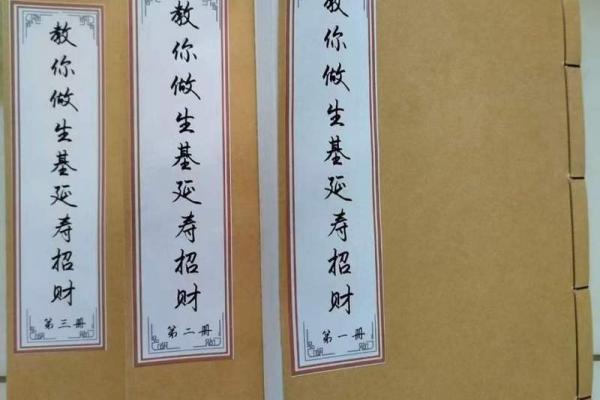 教你做生基延寿招财
第三册
教你做生基延寿招财
第二册
教你做生基延寿招财
第一册